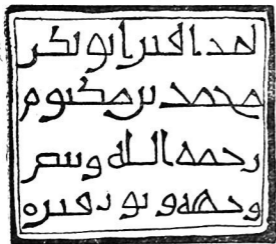 هذا قبر ابو بكر
محمد بن مكتوم
رحمه الله ونضر
وجهه ونور قبره